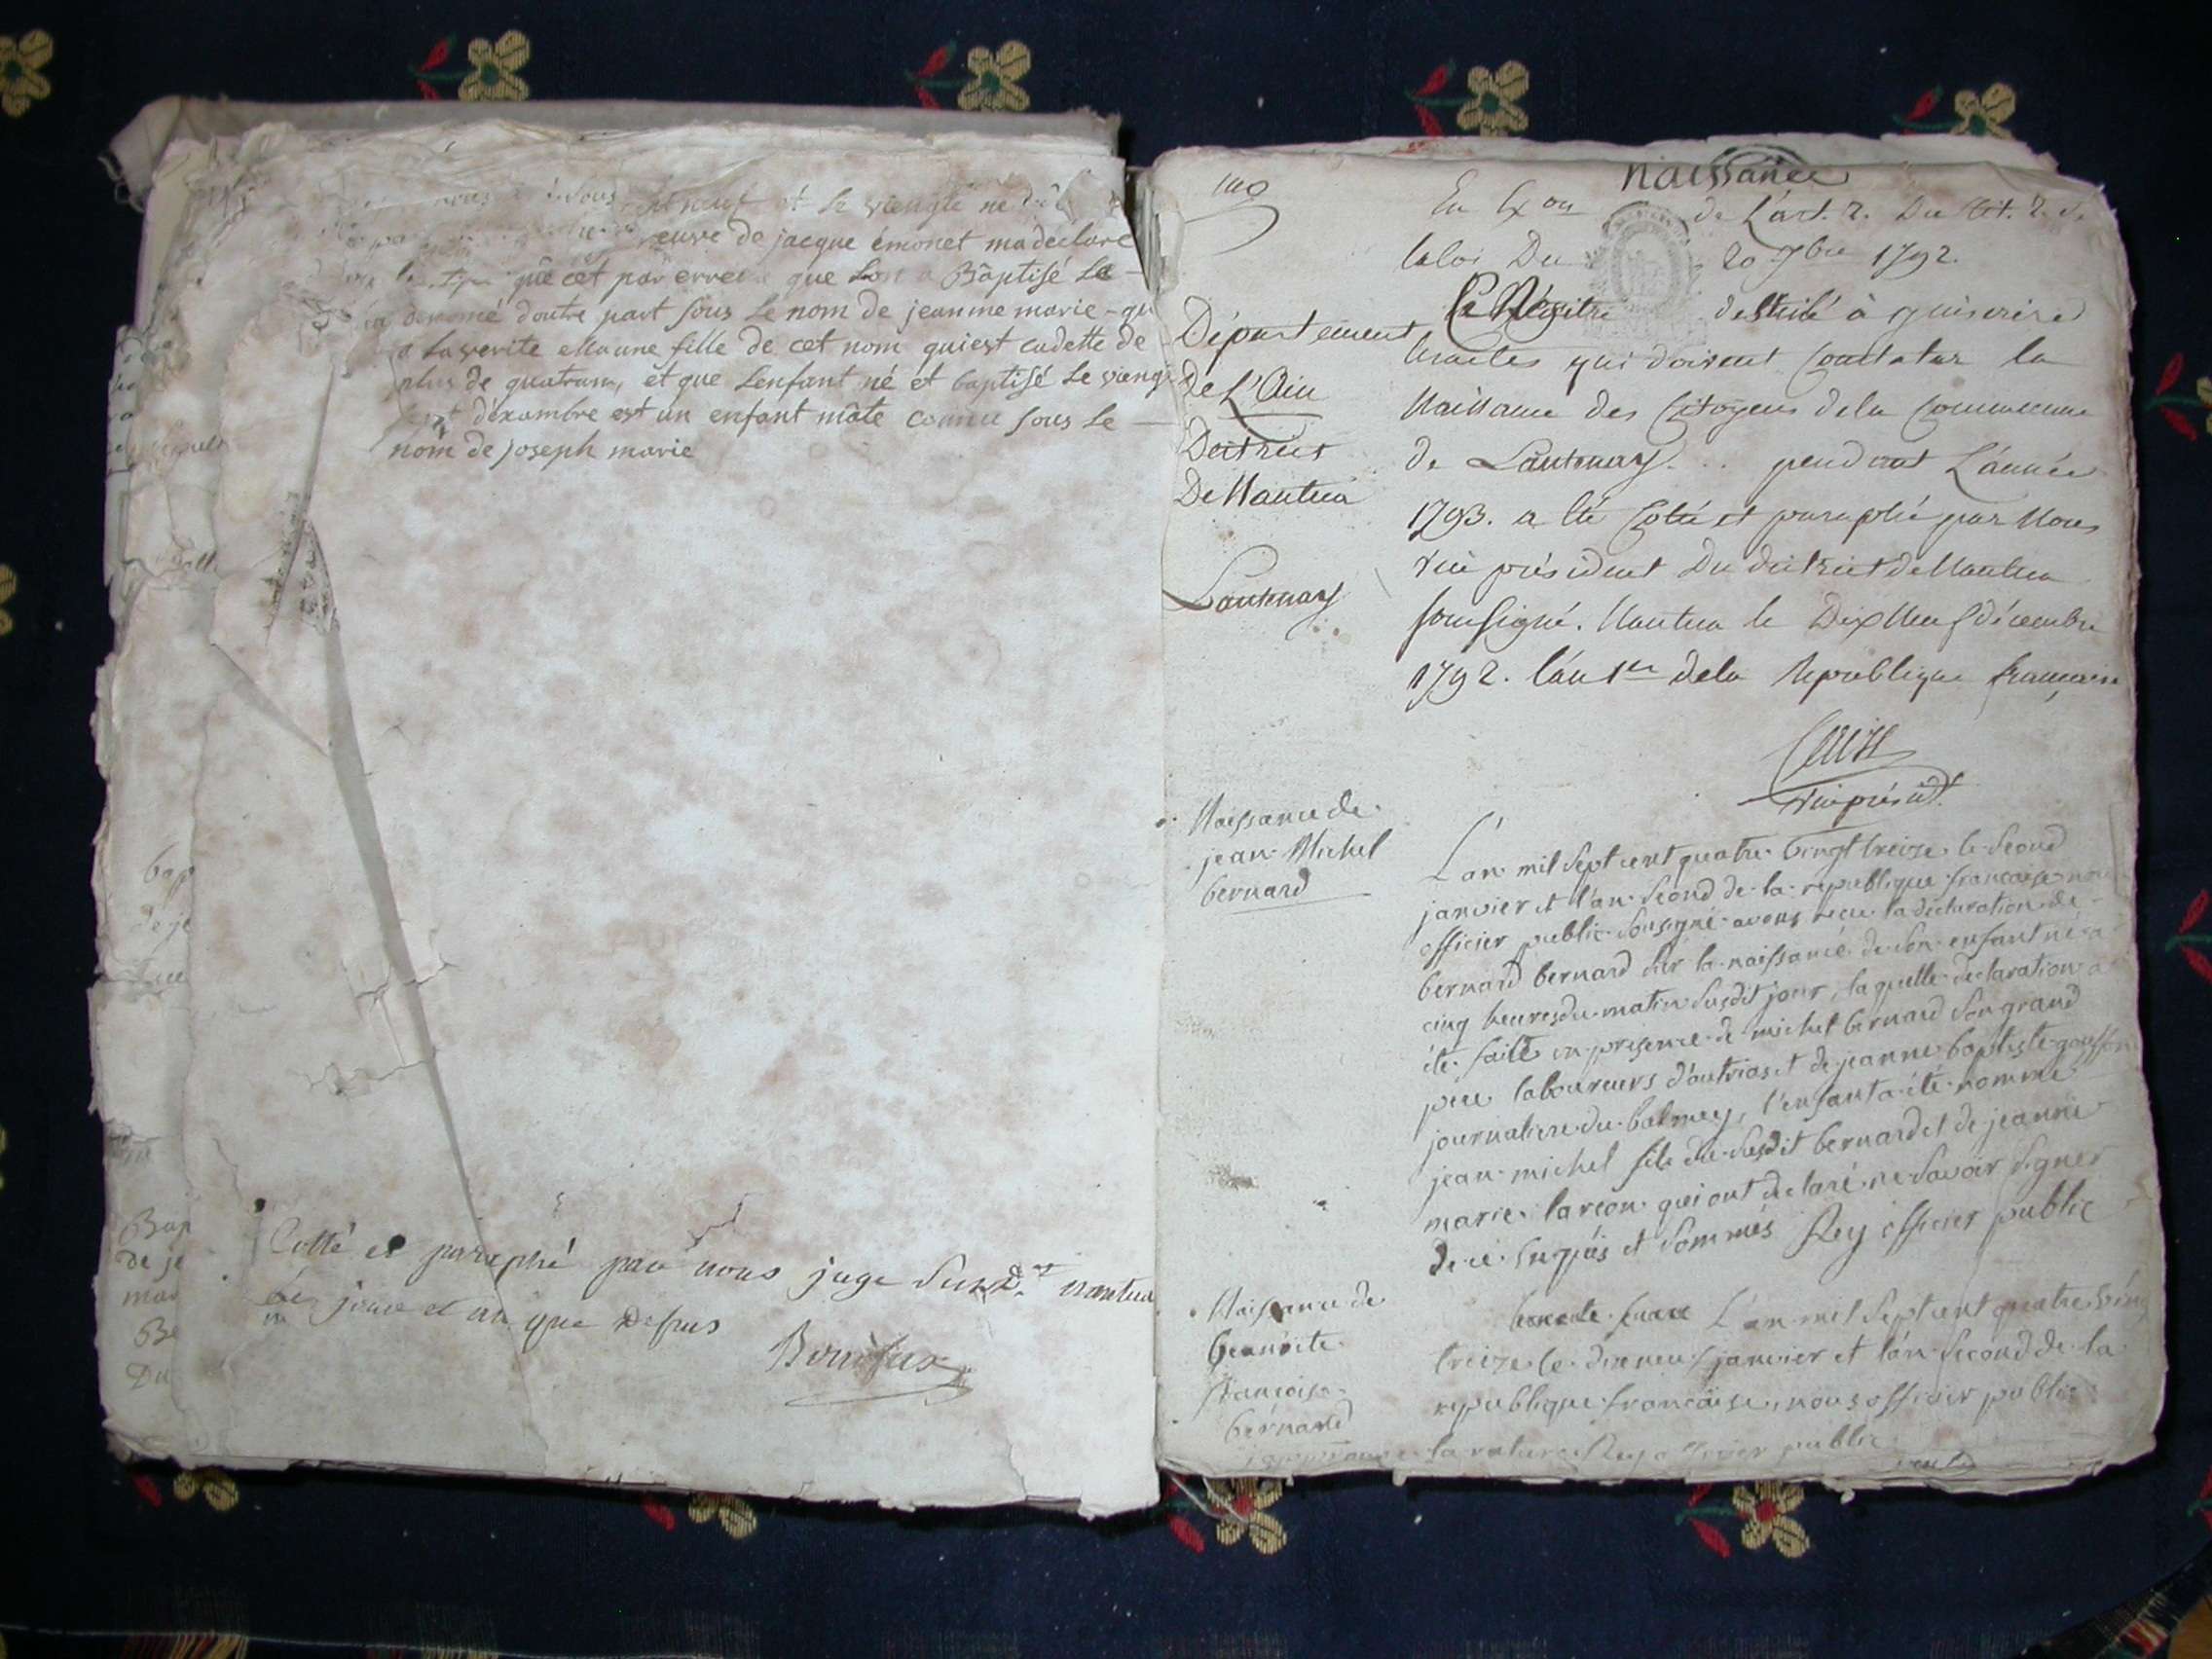 sept neuf et le viengte ne
veuve de jacque émonet ma déclare
que cèt par erreur que lon a Bâptisé le
denomé doutre part sous le nom de jeanne marie - qu
a la verite ella une fille de cet nom quiest cadette de
plus de quatr ans, et que lenfant né et baptisé le viengt
sept déxambre est un enfant mâle connu sous le
nom de joseph marie
Cotté et paraphé par nous juge nantua
les jour et an que dessus
naissance
En Exon de l'art. 2. Du tit. 2. de
la loi Du 20 7bre 1792.
Le Régitre destiné à inscrire
les actes qui doivent constater la
Naissance des Citoyens de la Commune
de Lantenay . . pendant L'année
1793. a été Cotté et paraphé par Nous
vice président Du district de Nantua
soussigné. Nantua le Dix Neuf décembre
1792. l'an 1er de la Republique française
vice présidt.
Département
De L'Ain
District
De Nantua
Lantenay
Naissance de
jean Michel
bernard
L'an mil sept cent quatre vingt treize le second
janvier et l'an second de la republique francaise nous
officier public sousigné avons recu la déclaration de
bernard bernard sur la naissance de son enfant né a
cinq heures du matin susdit jour, laquelle declaration a
éte faite en presence de michel bernard son grand
pere laboureurs d'outrias et de jeanne baptiste
journaliere du balmey, l'enfant a été nommé
jean michel fils du susdit bernard et de jeanne
marie larcon qui ont declaré ne savoir signer
de ce enquis et sommés Rey officier public
Naissance de
benoite
francoise
bernard
L'an mil sept cent quatre vingt
treize le dixneuf janvier et l'an second de la
republique francaise, nous officier public
la rature Rey officier public